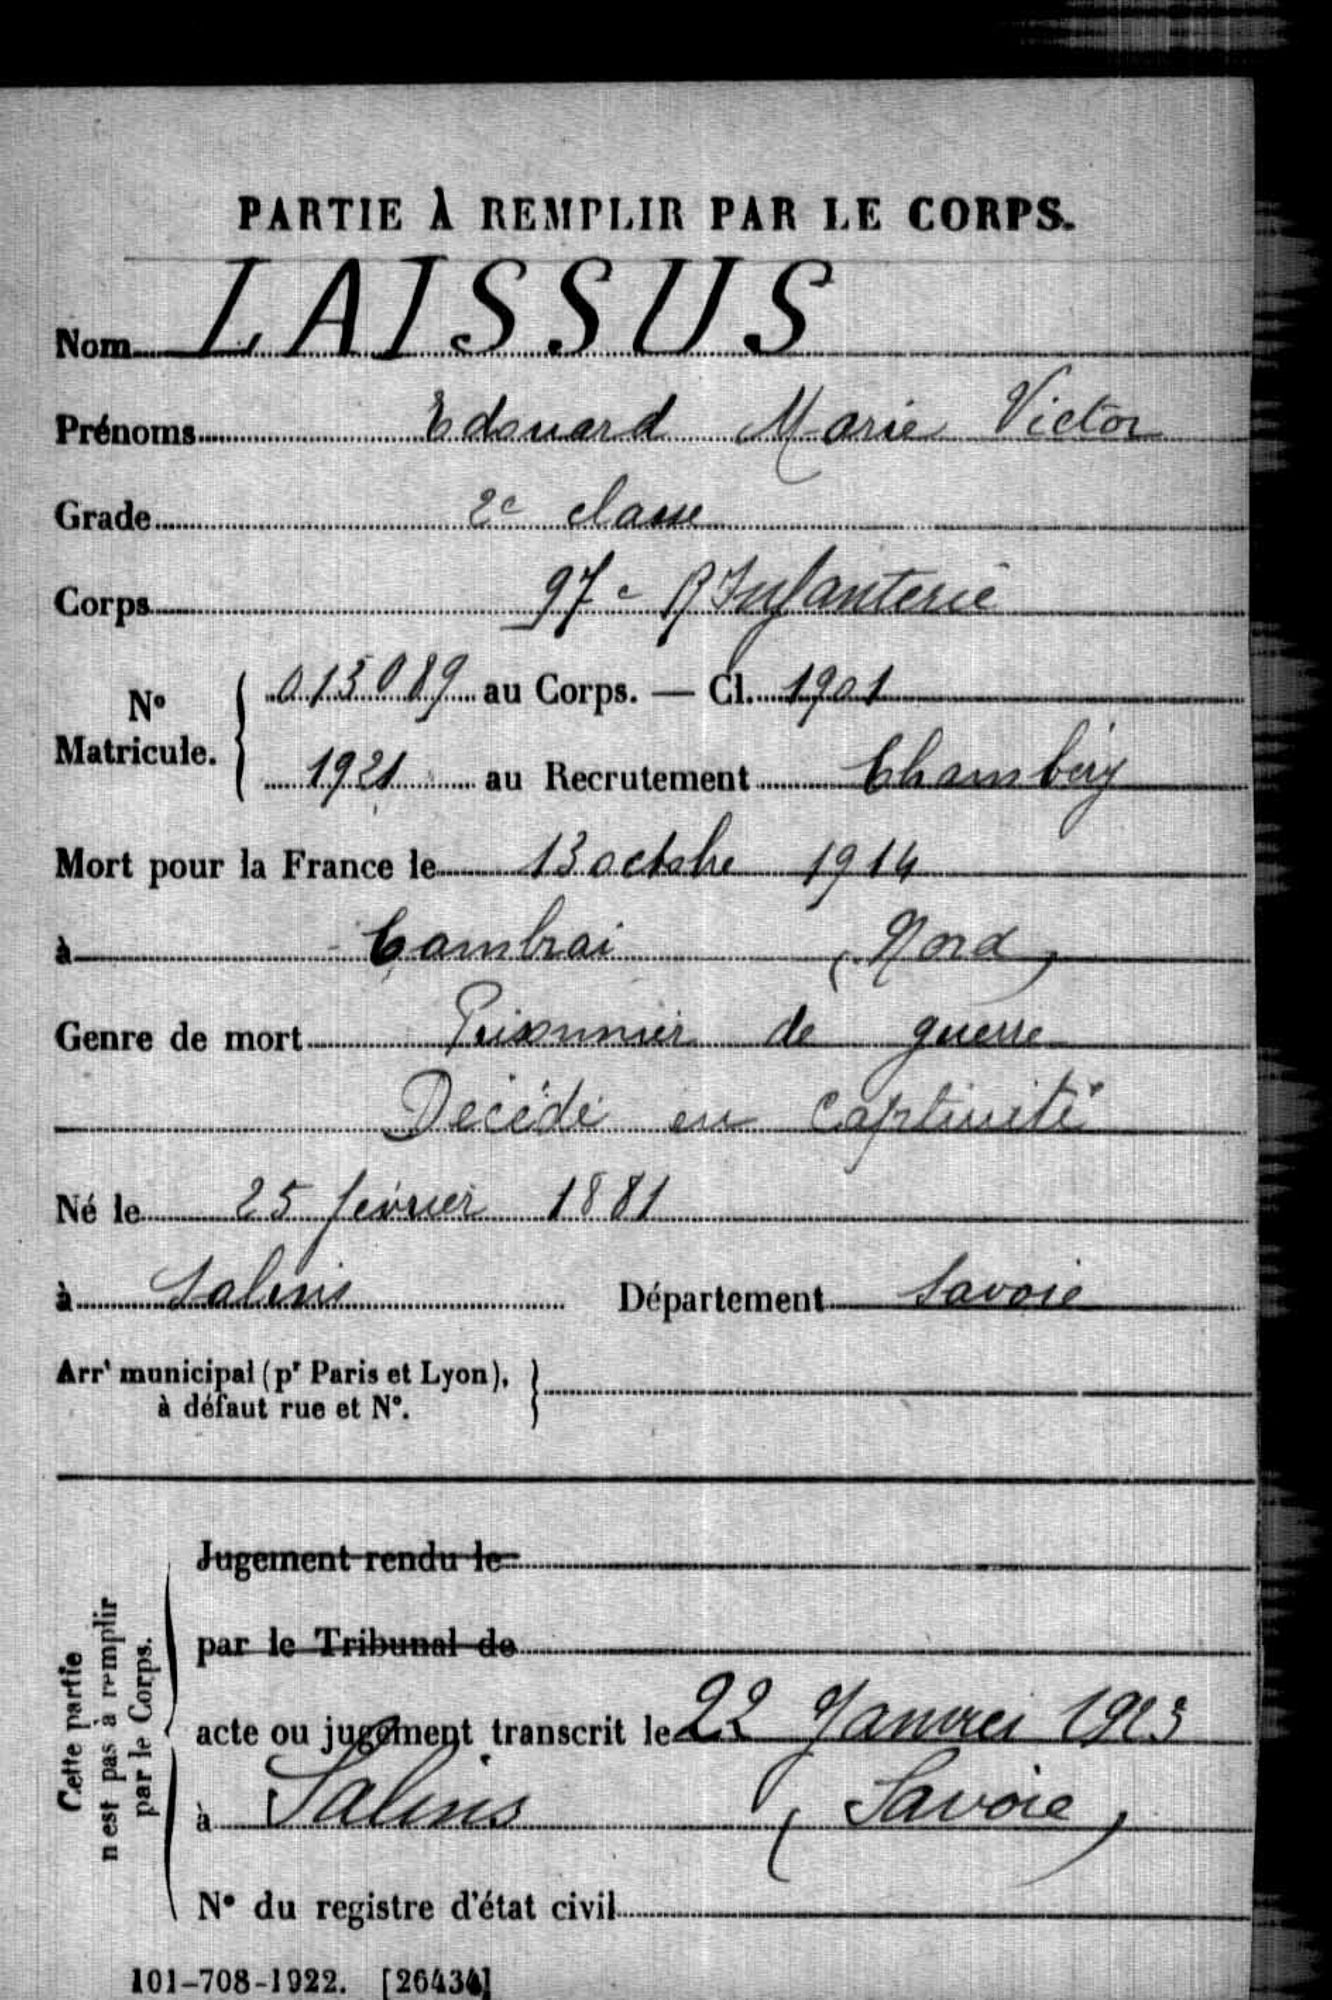 PARTIE À REMPLIR PAR LE CORPS.
Nom LAISSUS
Prénoms Edouard Marie Victor
Grade 2e classe
Corps 97e R Infanterie
N° Matricule. { 013089 au Corps. — Cl. 1901
1921 au Recrutement Chambéry
Mort pour la France le 13 octobre 1914
à Cambrai (Nord)
Genre de mort Prisonnier de guerre
Décédé en captivité
Né le 25 février 1881
à Salins Département Savoie
Arrt municipal (pr Paris et Lyon),
à défaut rue et N°.
Jugement rendu le
par le Tribunal de
acte ou jugement transcrit le 22 Janvier 1923
à Salins (Savoie)
N° du registre d'état civil
Cette partie
n'est pas à remplir
par le Corps.
101-708-1922. [26434]